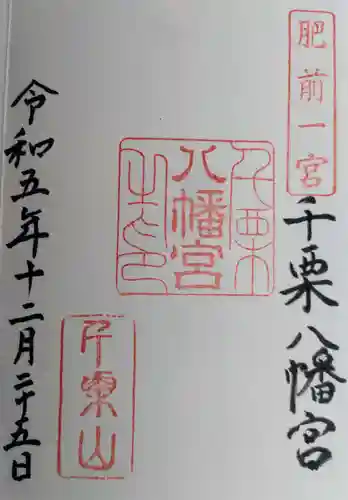 肥前一宮
千栗八幡宮
八幡宮
令和五年十二月二十五日
千栗山